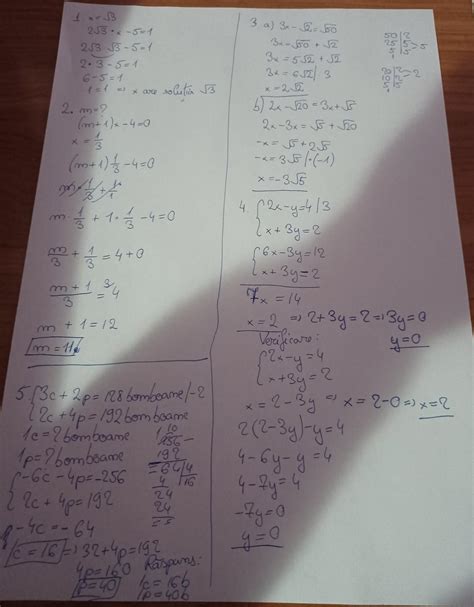 1. x=√3
2√3 · x-5=1
2√3 · √3-5=1
2 · 3-5=1
6-5=1
1=1 => x are soluția √3
2. m=?
(m+1)x-4=0
x=1/3
(m+1)1/3-4=0
m·1/3+1·1/3-4=0
m/3+1/3=4+0
m+1/3=4
m+1=12
m=11
3. a) 3x-√2=√50
3x=√50+√2
3x=5√2+√2
3x=6√2|3
x=2√2
50|2
25|5
5|5 >5
20|2
10|2 >2
5|5
b) 2x-√20=3x+√5
2x-3x=√5+√20
-x=√5+2√5
-x=3√5|·(-1)
x=-3√5
4. {2x-y=4|3
x+3y=2
{6x-3y=12
x+3y=2
7x=14
x=2 => 2+3y=2 => 3y=0
y=0
Verificare:
{2x-y=4
x+3y=2
x=2-3y => x=2-0 => x=2
2(2-3y)-y=4
4-6y-y=4
4-7y=4
-7y=0
y=0
5. {3c+2p=128 bomboane|-2
2c+4p=192 bomboane
1c=? bomboane
1p=? bomboane
{-6c-4p=-256
2c+4p=192
-4c=-64
c=16 => 32+4p=192
4p=160
p=40
256-
192
=64|4
4 |16
24
24
==
Răspuns:
1c=16b
1p=40b